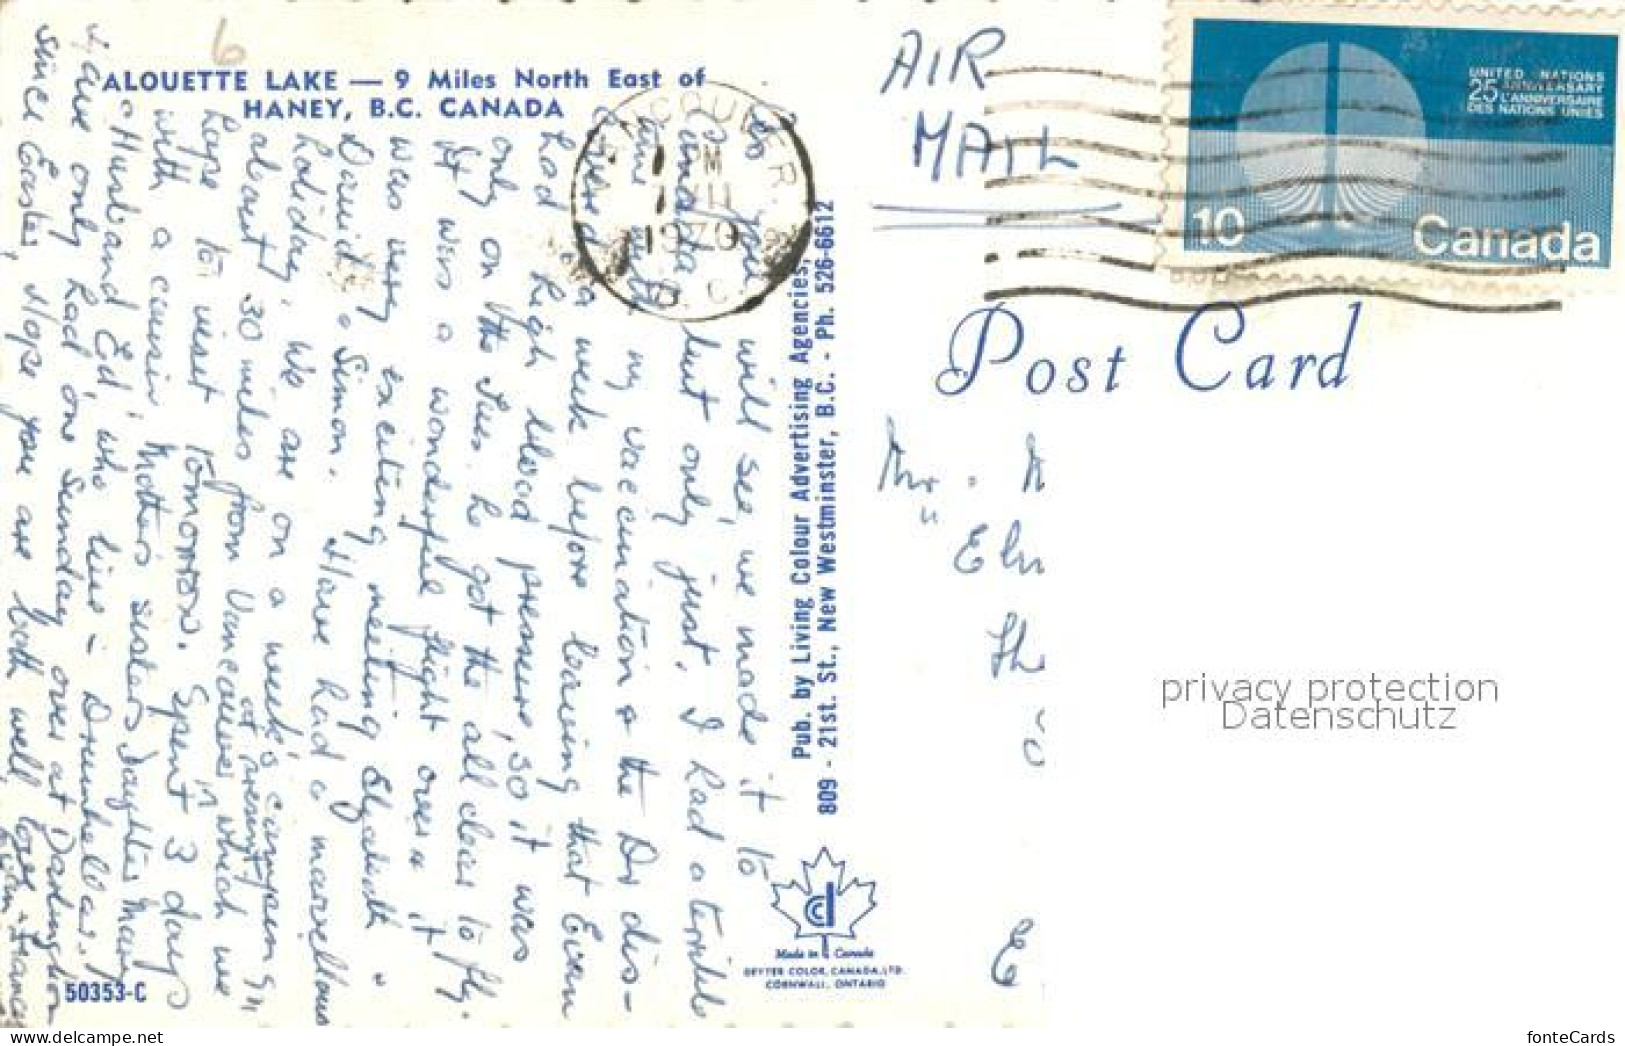 ALOUETTE LAKE — 9 Miles North East of
HANEY, B.C. CANADA
6
As you will see, we made it to
Canada but only just. I had a terrible
time with my vaccination & the Dr dis-
covered a week before leaving that Evan
had high blood pressure, so it was
only on the Tues. he got the 'all clear' to fly.
It was a wonderful flight over & it
was very exciting meeting Elizabeth &
David & Simon. Have had a marvellous
holiday. We are on a week's camping in
at present,
about 30 miles from Vancouver, which we
hope to visit tomorrow. Spent 3 days
with a cousin, Mother's sister's daughter Mary
& Husband Ed, who live in Drumheller.
Have only had one Sunday over at Darlington
since Easter. Hope you are both well, love
Evan & Frances
50353-C
VANCOUVER
PM
XII
1970
B.C.
Pub. by Living Colour Advertising Agencies,
809 - 21st. St., New Westminster, B.C. - Ph. 526-6612
Made in Canada
DEYTER COLOR, CANADA, LTD.
CORNWALL, ONTARIO
AIR
MAIL
UNITED NATIONS
25 ANNIVERSARY
L'ANNIVERSAIRE
DES NATIONS UNIES
10
Canada
Post Card
Mr.
"
E
privacy protection
Datenschutz
www.delcampe.net
fonteCards